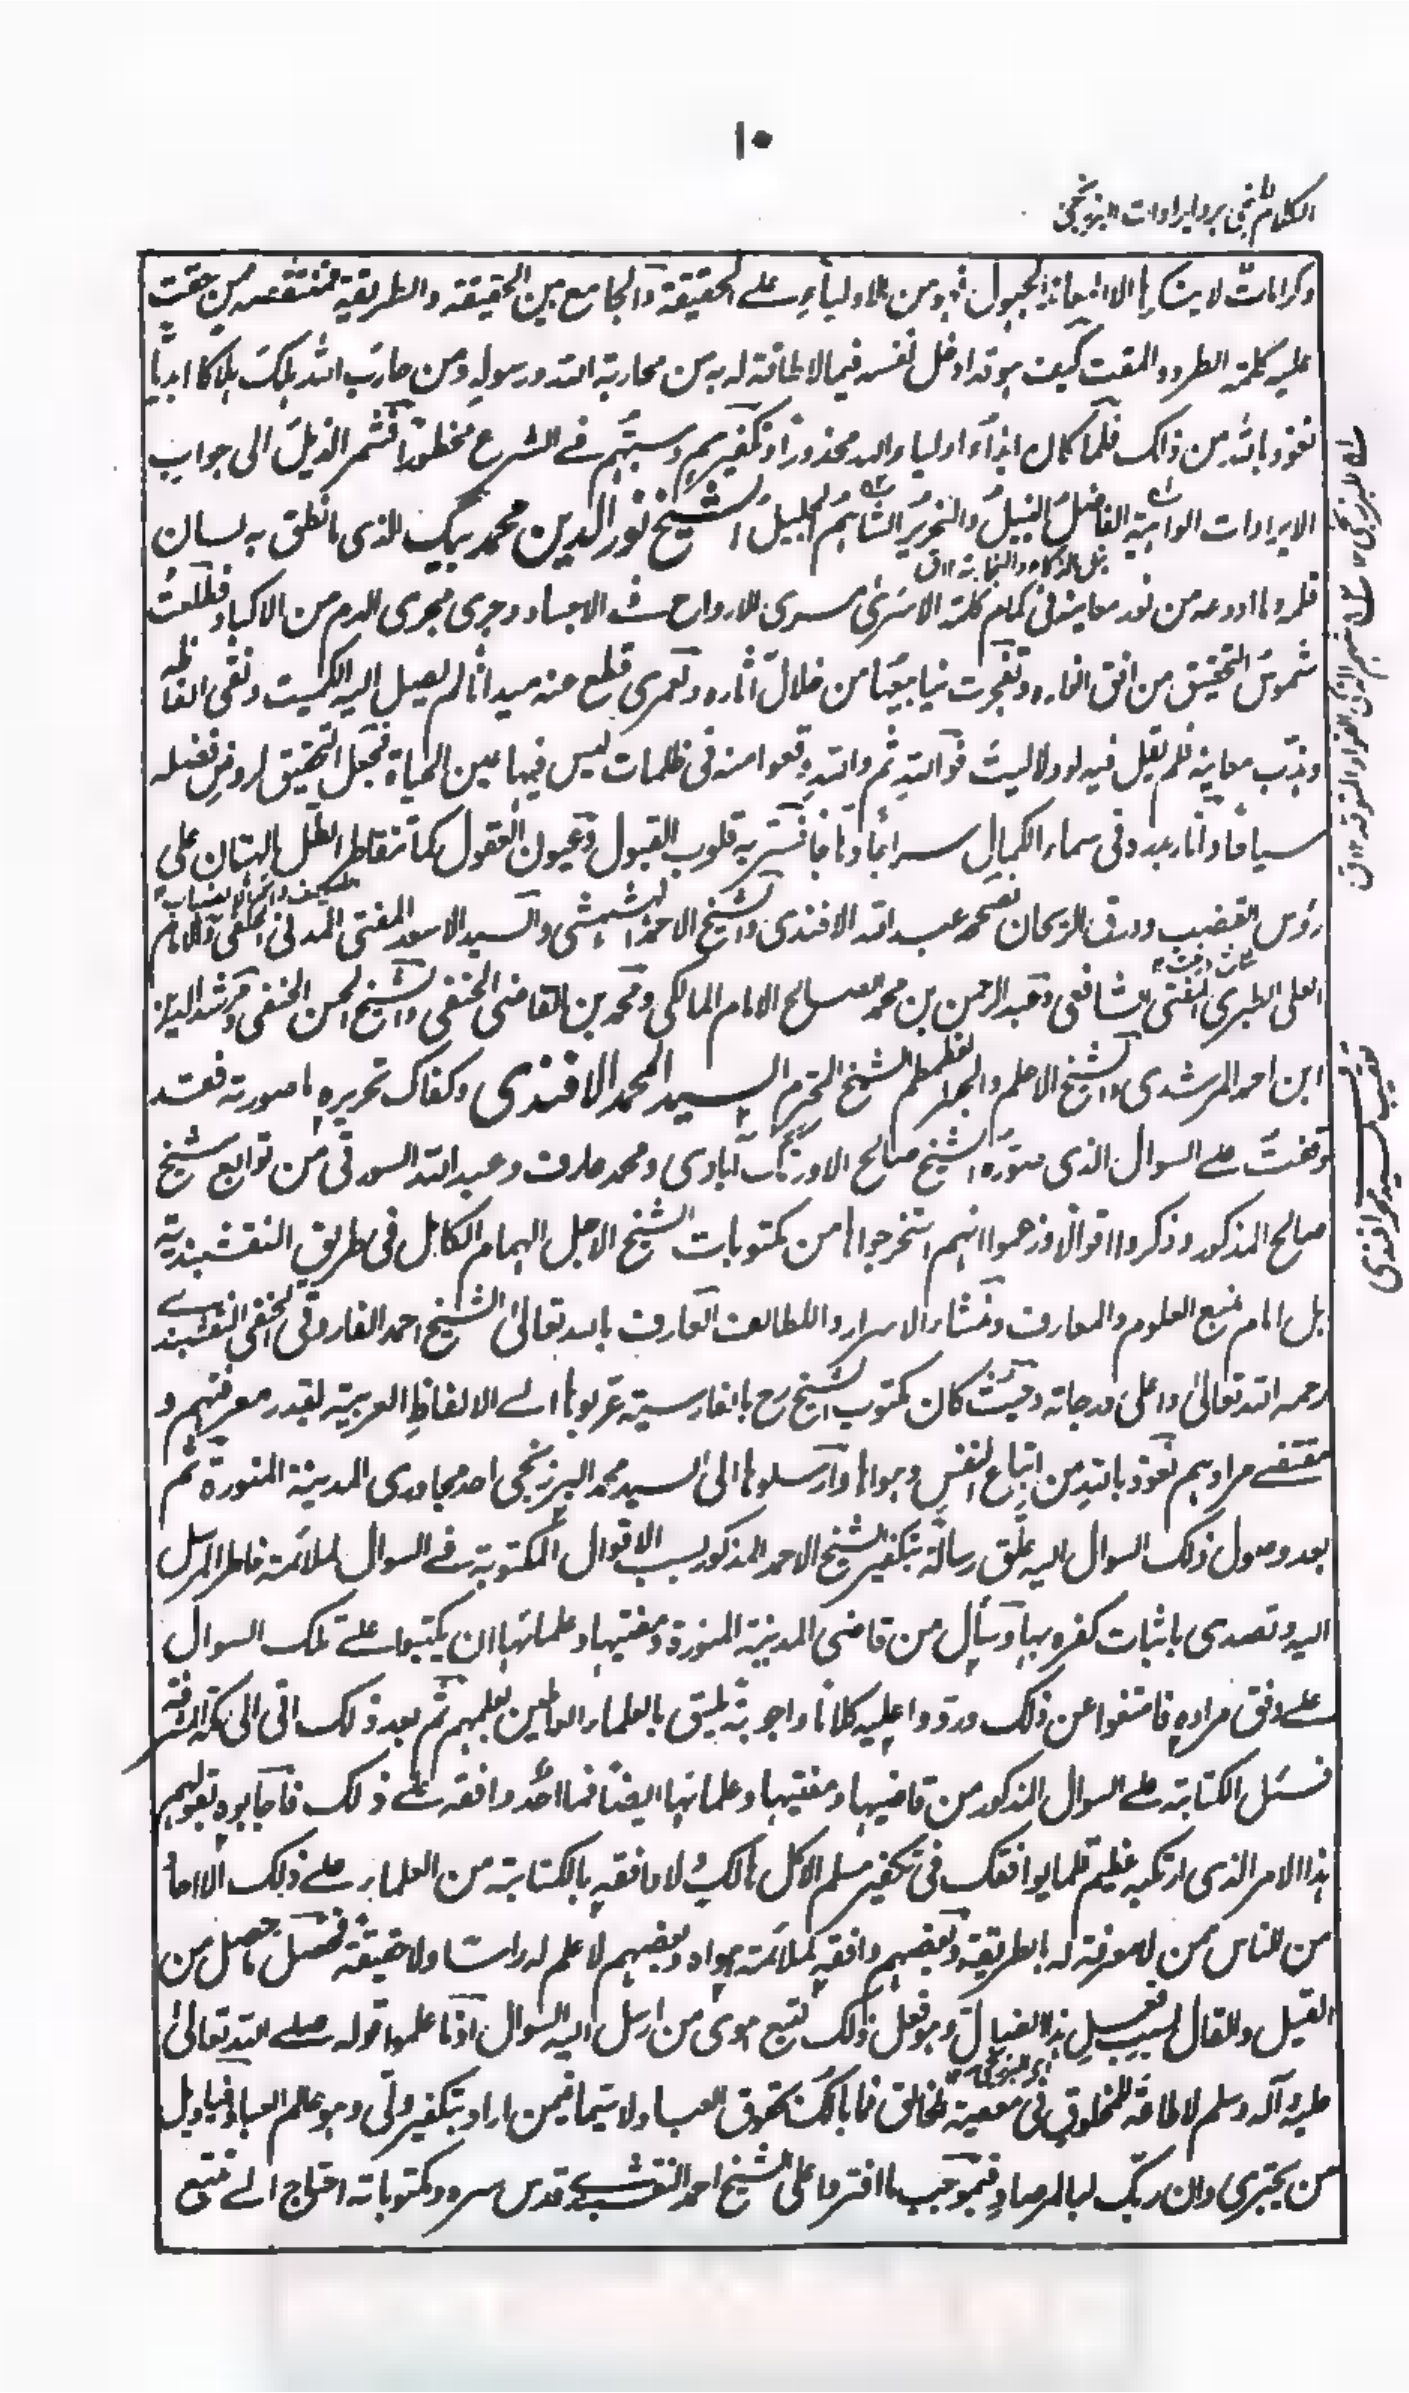 ١٠
الكلام المنجي برد ايرادات البرزنجي
وكرامات لا ينكرها الا الجهول فهو من الاولياء على الحقيقة والجامع بين الحقيقة والطريقة فمنتقصه ممن حقت
عليه كلمة الطرد والمقت كيف وقد ادخل نفسه فيما لا طاقة له به من محاربة الله ورسوله ومن حارب الله هلك هلاكا ابديا
نعوذ بالله من ذلك فلما كان ايذاء اولياء الله محذورا وتكفيرهم وسبهم في الشرع محظورا فشمر الذيل الى جواب
الايرادات الواهية الفاضل النبيل والنحرير الشاهم الجليل الشيخ نور الدين محمد بيك الذي ما نطق به لسان
قلمه وما اودعه من نور معانيه في كمام كلمة الا سرى سرى الارواح في الاجساد وجرى مجرى الدم من الاكباد فطلعت
شموس التحقيق من افق افكاره وتفجرت ينابيعها من خلال آثاره ولعمري قطع منه ميدانا لم يصل اليه الكميت ونقى الفاظه
وهذب معانيه فلم يقل فيه لو ولا ليت فوالله ثم والله وقعوا منه في ظلمات ليس فيها عين الحياة فجعل التحقيق لروض فضله
سياقا وانار بدره في سماء الكمال سراجا وهاجا فتسر به قلوب القبول وعيون العقول كما تقاطر الطل الهتان على
رؤس القضيب وورق الريحان فصححه عبد الله الافندي والشيخ الاحمد البشيشي والسيد الاسعد المفتي المدني الحنفي والامام
العلى الطبري المفتي الشافعي وعبد الرحمن بن محمد صالح الامام المالكي ومحمد بن القاضي الحنفي والشيخ الحسن الحنفي ومرشد الدين
ابن احمد المرشدي والشيخ الاعلم والشيخ المحترم السيد المحمد الافندي وكفاك تحريره ما صورته فقد
وقفت على السوال الذي صوره الشيخ صالح الاورنگ آبادي ومحمد عارف وعبد الله السورتي من توابع شيخ
صالح المذكور وذكروا اقوالا وزعموا انهم استخرجوها من مكتوبات الشيخ الاجل الهمام الكامل في طريق النقشبندية
بل امام منبع العلوم والمعارف ومنشاء الاسرار واللطائف العارف بالله تعالى الشيخ احمد الفاروقي الحنفي النقشبندي
رحمه الله تعالى واعلى درجاته وحيث كان مكتوب الشيخ رح بالفارسية عربوها الى الالفاظ العربية بقدر معرفتهم و
مقتضى مرادهم نعوذ بالله من اتباع النفس وهواها وارسلوها الى السيد محمد البرزنجي احد مجاوري المدينة المنورة ثم
بعد وصول ذلك السوال اليه علق رسالة بتكفير الشيخ الاحمد المذكور بسبب الاقوال المكتوبة في السوال لملائمة خاطر المرسل
اليه وتصدى باثبات كفره بها وسأل من قاضي المدينة المنورة ومفتيها وعلمائها ان يكتبوا على تلك السوال
على وفق مراده فامتنعوا عن ذلك وردوا عليه كلاما واجوبة يليق بالعلماء العاملين بعلمهم ثم بعد ذلك اتى الى مكة المشرفة
فسئل الكتابة على السوال المذكور من قاضيها ومفتيها وعلمائها ايضا فما احد وافقه على ذلك فاجابوه بقولهم
هذا الامر الذي ارتكبه عظيم فلما يوافقك في تكفير مسلم الا كل هالك ولا وافقه بالكتابة من العلماء على ذلك الا احاد
من الناس ممن لا معرفة له بالطريقة وبعضهم وافقه لملائمة هواه وبعضهم لا علم له راسا ولا حقيقة فحصل ما حصل من
القيل والقال بسبب فعل هذا الضال وهو فعل ذلك لتتبع هوى من ارسل اليه السوال اذ ما علم قوله صلى الله تعالى
عليه وآله وسلم لا طاعة للمخلوق في معصية الخالق فما بالك بحقوق العباد ولا سيما فيمن اراد بتكفير ولي وهو عالم العباد فياويل
من يجتري وان ربك لبالمرصاد فبموجب ما افتروا على الشيخ احمد النقشبندي قدس سره ومكتوباته احتاج الى مفتي
تقريظ سيد محمد افندي